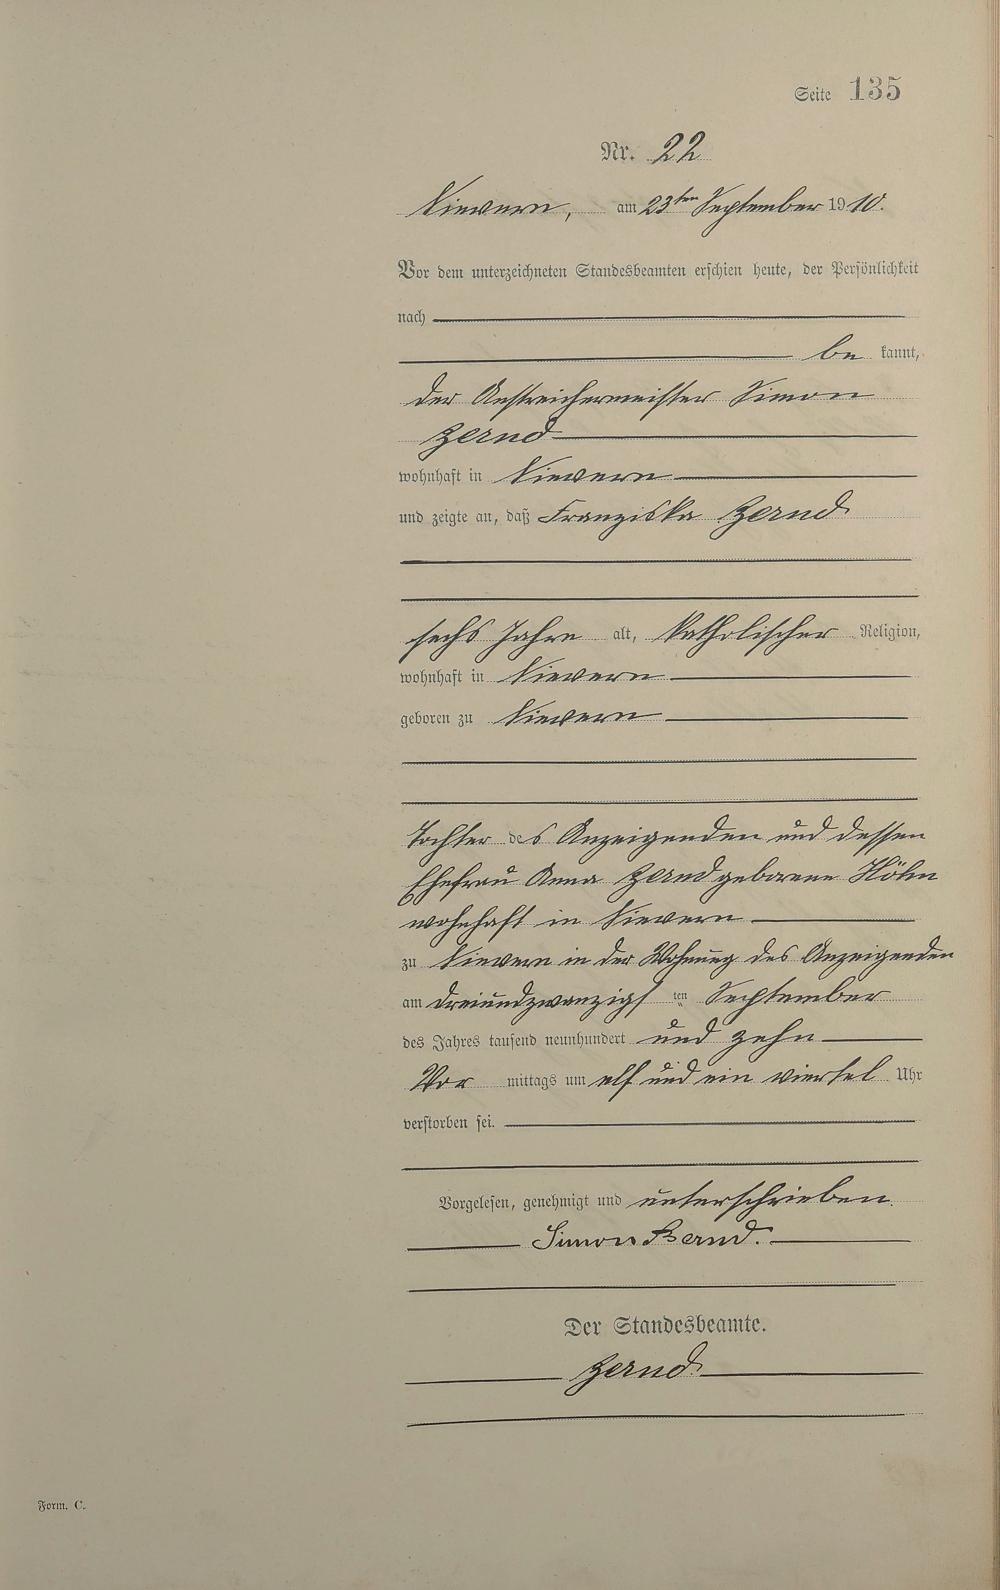 Seite 135
Nr. 22
Nievern, am 23ten September 1910.
Vor dem unterzeichneten Standesbeamten erschien heute, der Persönlichkeit
nach
be kannt,
der Anstreichermeister Simon
Zernd
wohnhaft in Nievern
und zeigte an, daß Franziska Zernd
sechs Jahre alt, katholischer Religion,
wohnhaft in Nievern
geboren zu Nievern
Tochter des Anzeigenden und dessen
Ehefrau Anna Zernd geborene Höhn
wohnhaft in Nievern
zu Nievern in der Wohnung des Anzeigenden
am dreiundzwanzigsten September
des Jahres tausend neunhundert und zehn
Vor mittags um elf und ein viertel Uhr
verstorben sei.
Vorgelesen, genehmigt und unterschrieben
Simon
Der Standesbeamte.
Zernd
Form. C.